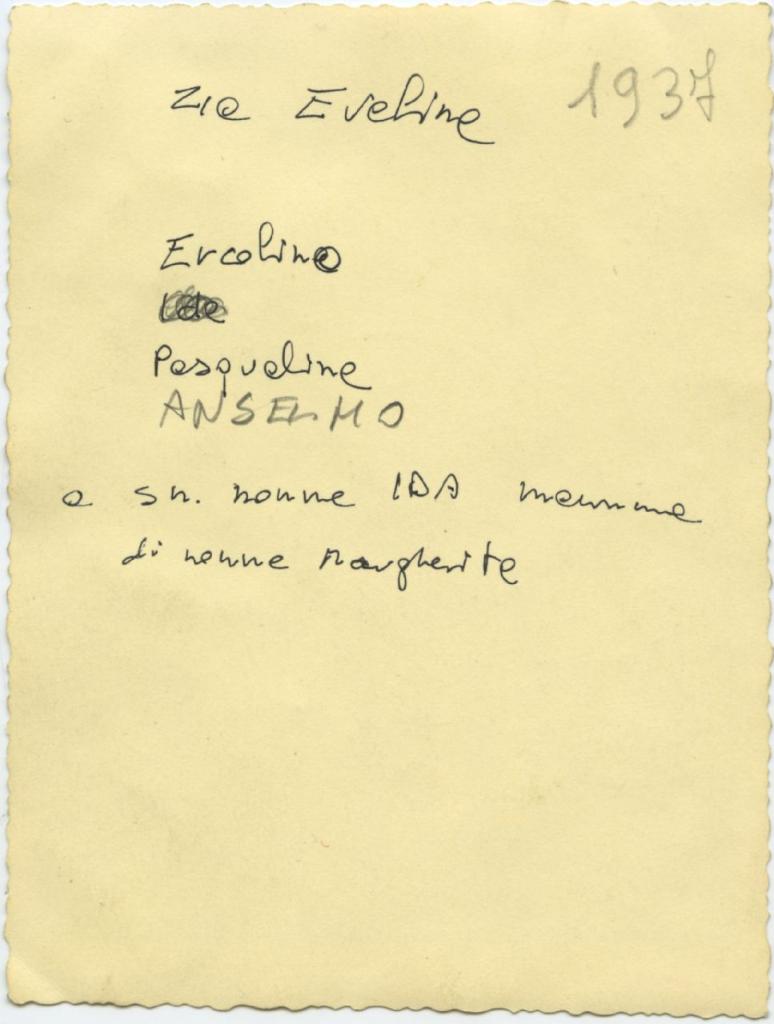 zia Evelina 1937
Ercolino
Ida
Pasqualina
ANSELMO
a sn. nonna IDA mamma
di nonna Margherita